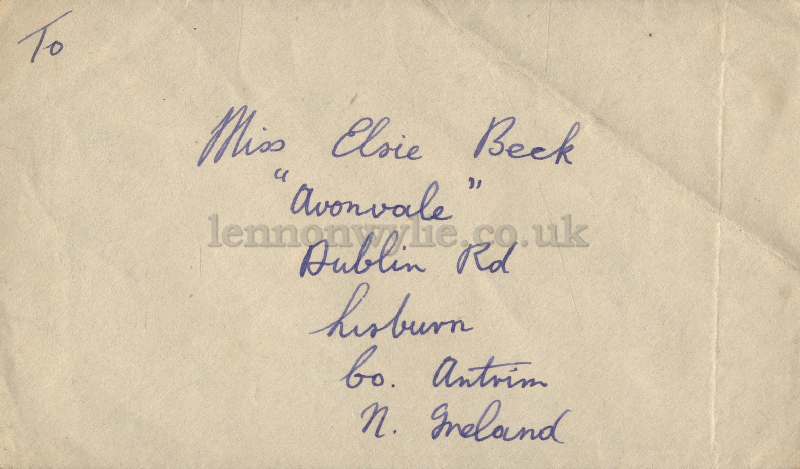 To
Miss Elsie Beck
"Avonvale"
lennonwylie.co.uk
Dublin Rd
Lisburn
Co. Antrim
N. Ireland